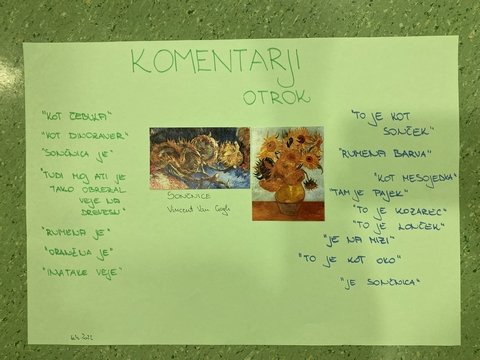 KOMENTARJI
OTROK
"KOT ČEBULA"
"KOT DINOZAVER"
"SONČNICA JE"
"TUDI MOJ ATI JE
TAKO OBREZAL
VEJE NA
DREVESU"
"RUMENA JE"
"ORANŽNA JE"
"IMA TAKE VEJE"
SONČNICE
Vincent Van Gogh
"TO JE KOT
SONČEK"
"RUMENA BARVA"
"KOT MESOJEDKA"
"TAM JE PAJEK"
"TO JE KOZAREC"
"TO JE LONČEK"
"JE NA MIZI"
"TO JE KOT OKO"
"JE SONČNICA"